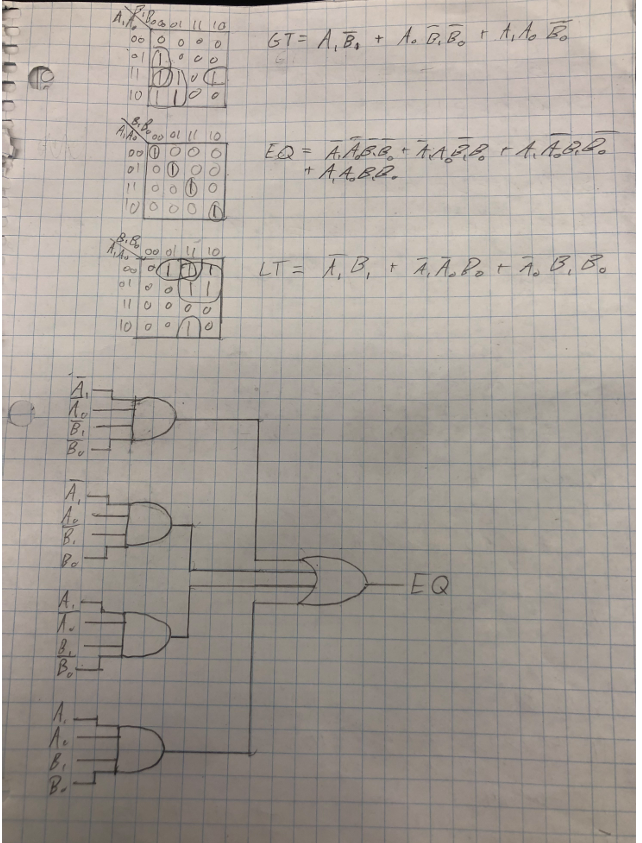 B₁B₀ 00 01 11 10
A₁A₀
00 0 0 0 0
01 1 0 0 0
11 1 1 0 1
10 1 1 0 0
GT = A₁B̅₁ + A₀ B̅₁B̅₀ + A₁A₀ B̅₀
B₁B₀ 00 01 11 10
A₁A₀
00 1 0 0 0
01 0 1 0 0
11 0 0 1 0
10 0 0 0 1
EQ = A̅₁A̅₀B̅₁B̅₀ + A̅₁A₀B̅₁B₀ + A₁A̅₀B₁B̅₀
+ A₁A₀B₁B₀
B₁B₀ 00 01 11 10
A₁A₀
00 0 1 1 1
01 0 0 1 1
11 0 0 0 0
10 0 0 1 0
LT = A̅₁B₁ + A̅₁A̅₀B₀ + A̅₀B₁B̅₀
A̅₁
A̅₀
B̅₁
B̅₀
A̅₁
A₀
B̅₁
B₀
EQ
A₁
A̅₀
B₁
B̅₀
A₁
A₀
B₁
B₀